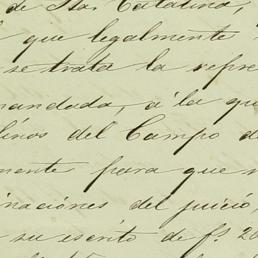 de Sta. Catalina,
que legalmente
se trata la repre
mandada, a la qu
linos del Campo d
mente para que
naciones del juicio,
su escrito de fs. 20